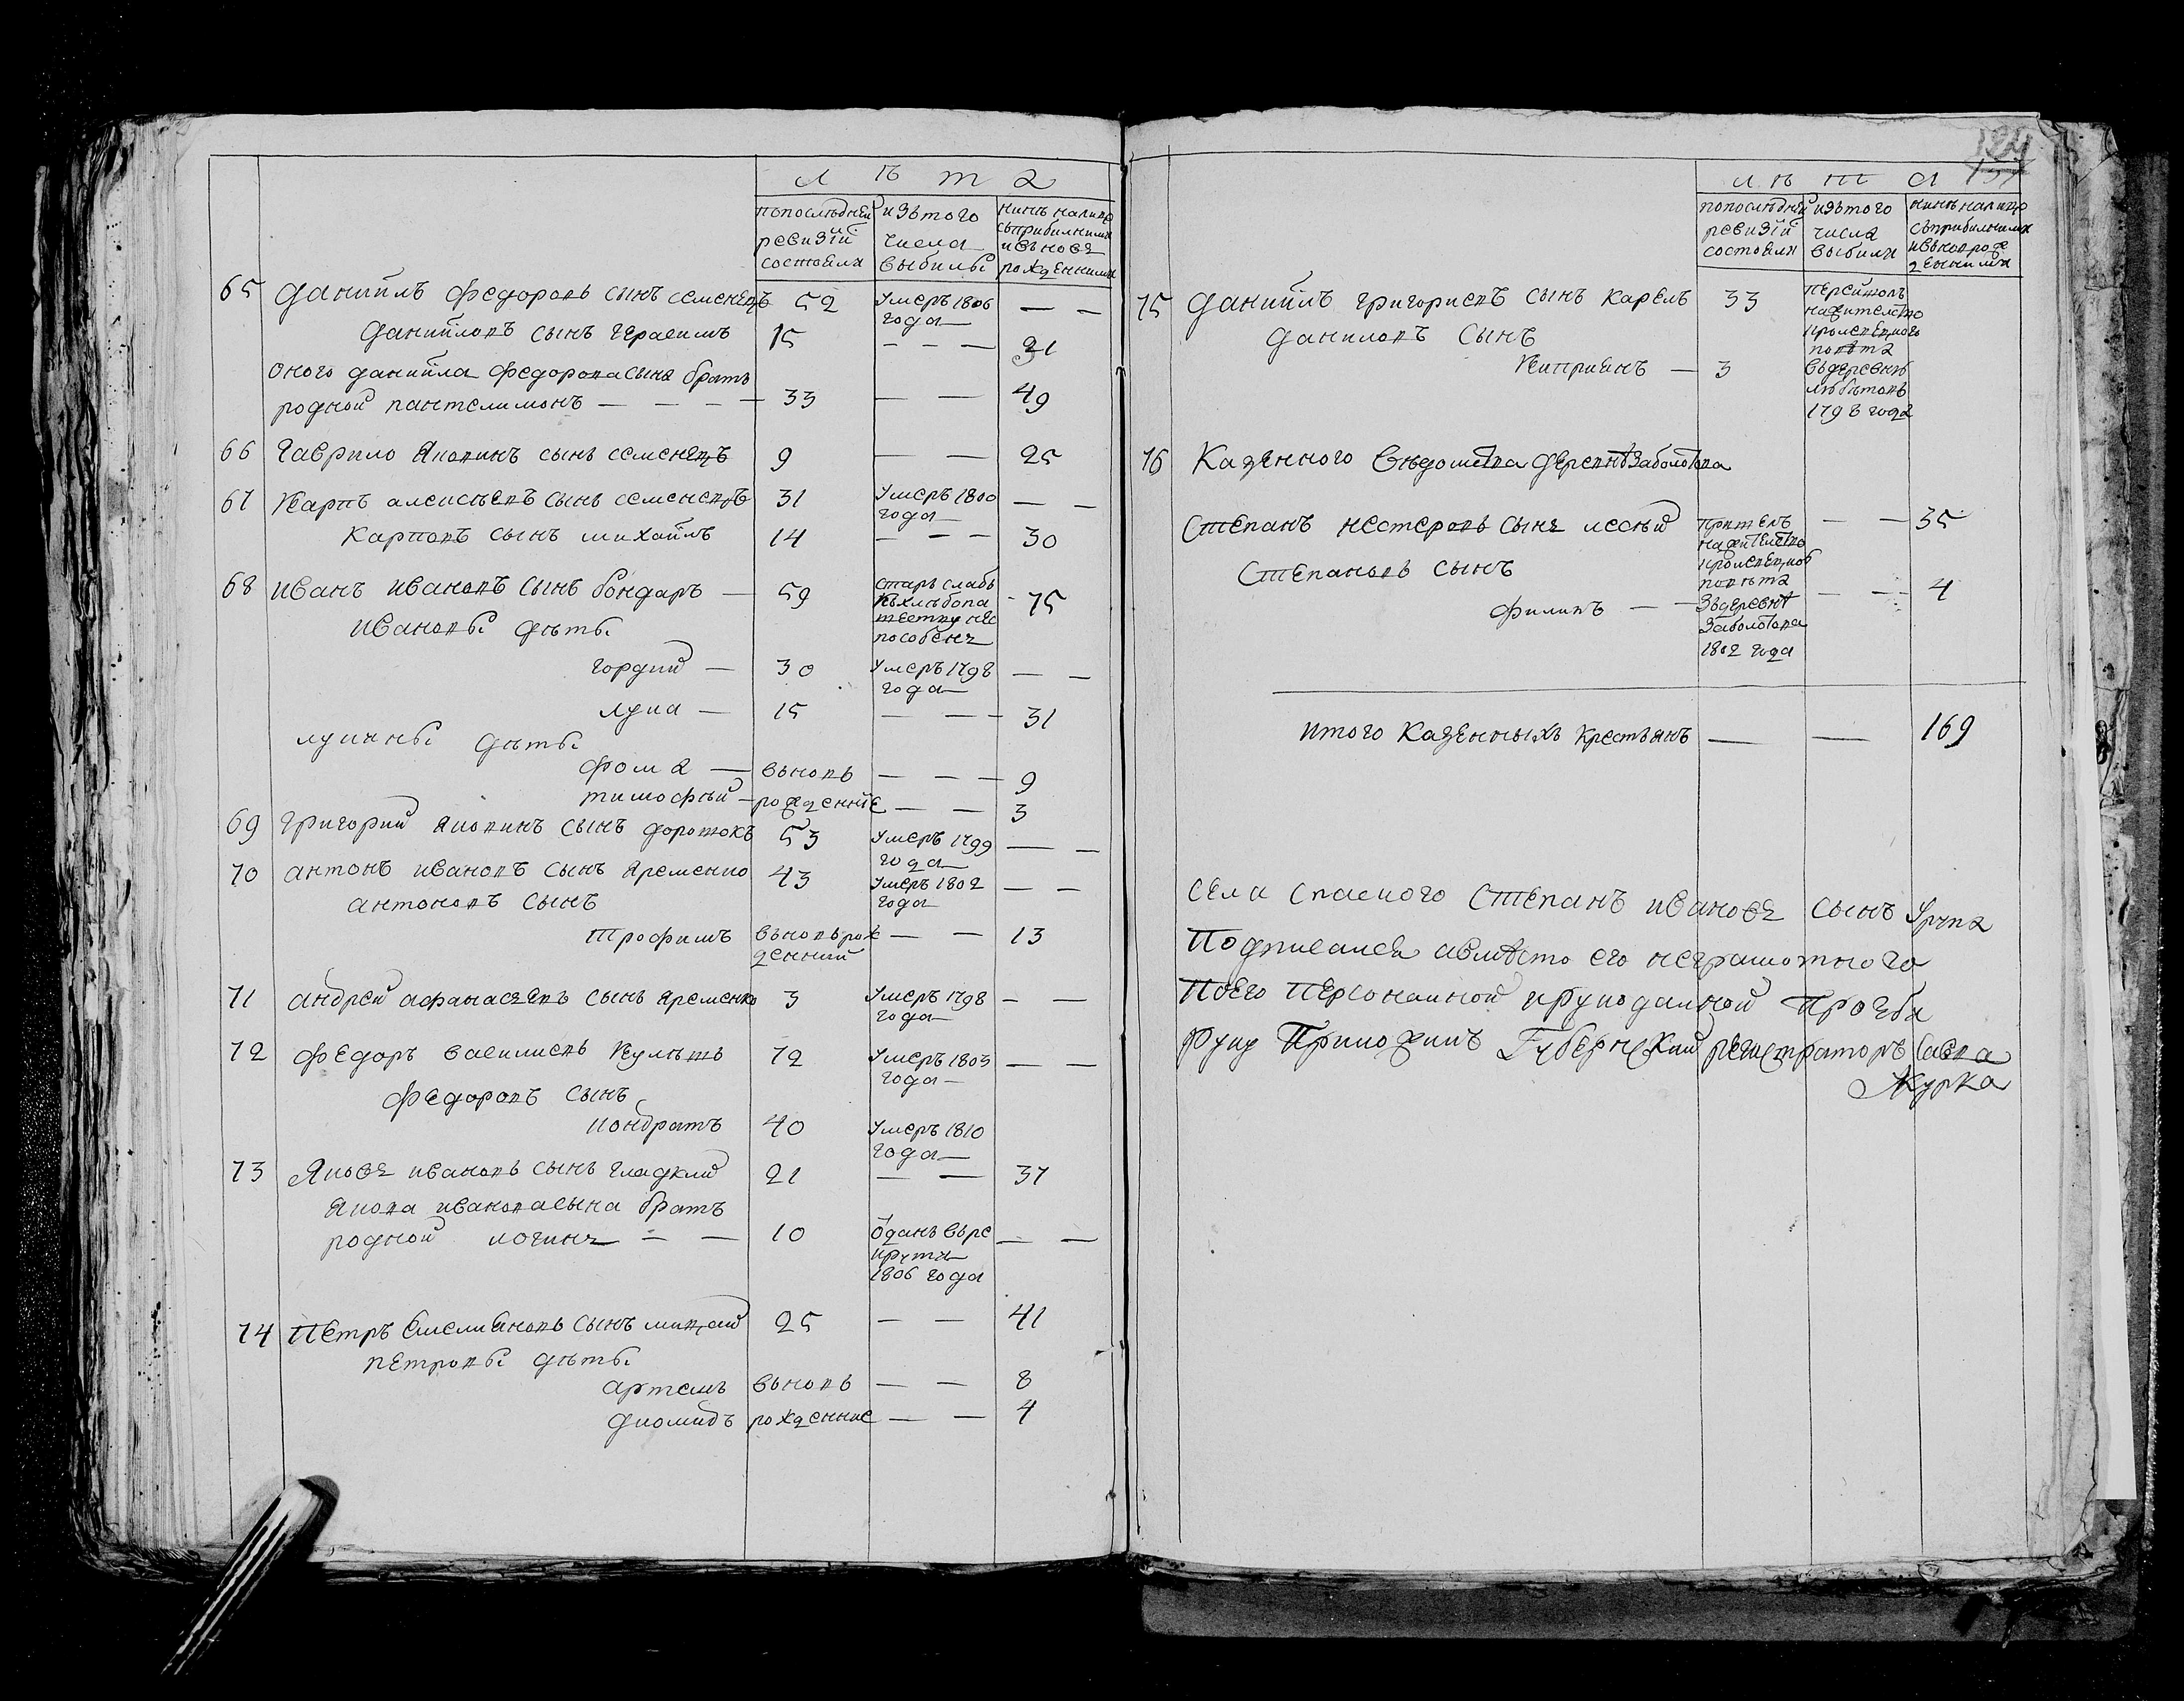 лѣта
попослѣдней ревизiй состояли
изътого числа выбилы
нинѣ налицо съприбилними ивъновъ рожденними
65 Данiйлъ федоровъ сынъ семенецъ 52 умеръ 1806 — —
года
Данiйловъ сынъ герасимъ 15 — — — 31
оного данiйла федорова сына братъ
родной пантелимонъ — — — — 33 — — 49
66 гаврило яковинъ сынъ семенецъ 9 — — 25
67 Карпъ алексѣевъ сынъ семенецъ 31 умеръ 1800 — —
года
Карповъ сынъ михайлъ 14 — — — 30
68 иванъ ивановъ сынъ бондаръ — 59 старъ слабъ 75
къхлѣбопа
шеству нес
пособенъ
ивановы дѣты
гордий — 30 умеръ 1798 — —
года
лука — 15 — — — 31
лукины дѣты
фома — вьновь — — — 9
тимофѣй — рожденнiе — — 3
69 григорий яковинъ сынъ доротокъ 53 умеръ 1799 — —
года
70 антонъ ивановъ сынъ яременко 43 умеръ 1802 — —
года
антоновъ сынъ
трофимъ вьновь рож — — 13
денний
71 андрей афанасѣевъ сынъ яременко 3 умеръ 1798 — —
года
72 федоръ василиевъ Кулѣшъ 72 умеръ 1803 — —
года —
федоровъ сынъ
кондратъ 40 умеръ 1810
года —
73 яковъ ивановъ сынъ гладкий 21 — — 37
якова иванова сына братъ
родной логинъ — — 10 отданъ вьре — —
круты
1806 года
74 Петръ емелияновъ сынъ 25 — — 41
петровы дѣты
артемъ вьновь — — 8
диомидъ рожденние — — 4
124
лѣта
попослѣднѣй ревизiй состояли
изьтого числа выбили
нинѣ налицо съприбилними ивьнов рожденними
75 Данiйлъ григориевъ сынъ Карелъ 33 перейшолъ
нажителство
кролевецкого
повѣта
вьдеревнѣ
любѣтовъ
1798 года
Даниловъ сынъ
Киприянъ — 3
76 Казенного вѣдомства деревнѣ заболотова
Степанъ нестеровъ сынъ лесный пришелъ — — 35
нажителство
кролевецкоь
повѣта
зьдеревнѣ
Заболотова
1802 года
Степановъ сынъ
филипъ — — — — 4
итого Казенныхъ Крестьянъ — — 169
села спаского Степанъ ивановъ сынъ
Подписался авмѣсто его неграмотного
Поего персоналной ирукоданной прозби
руку Приложилъ Губернский регистраторъ савва
Журка